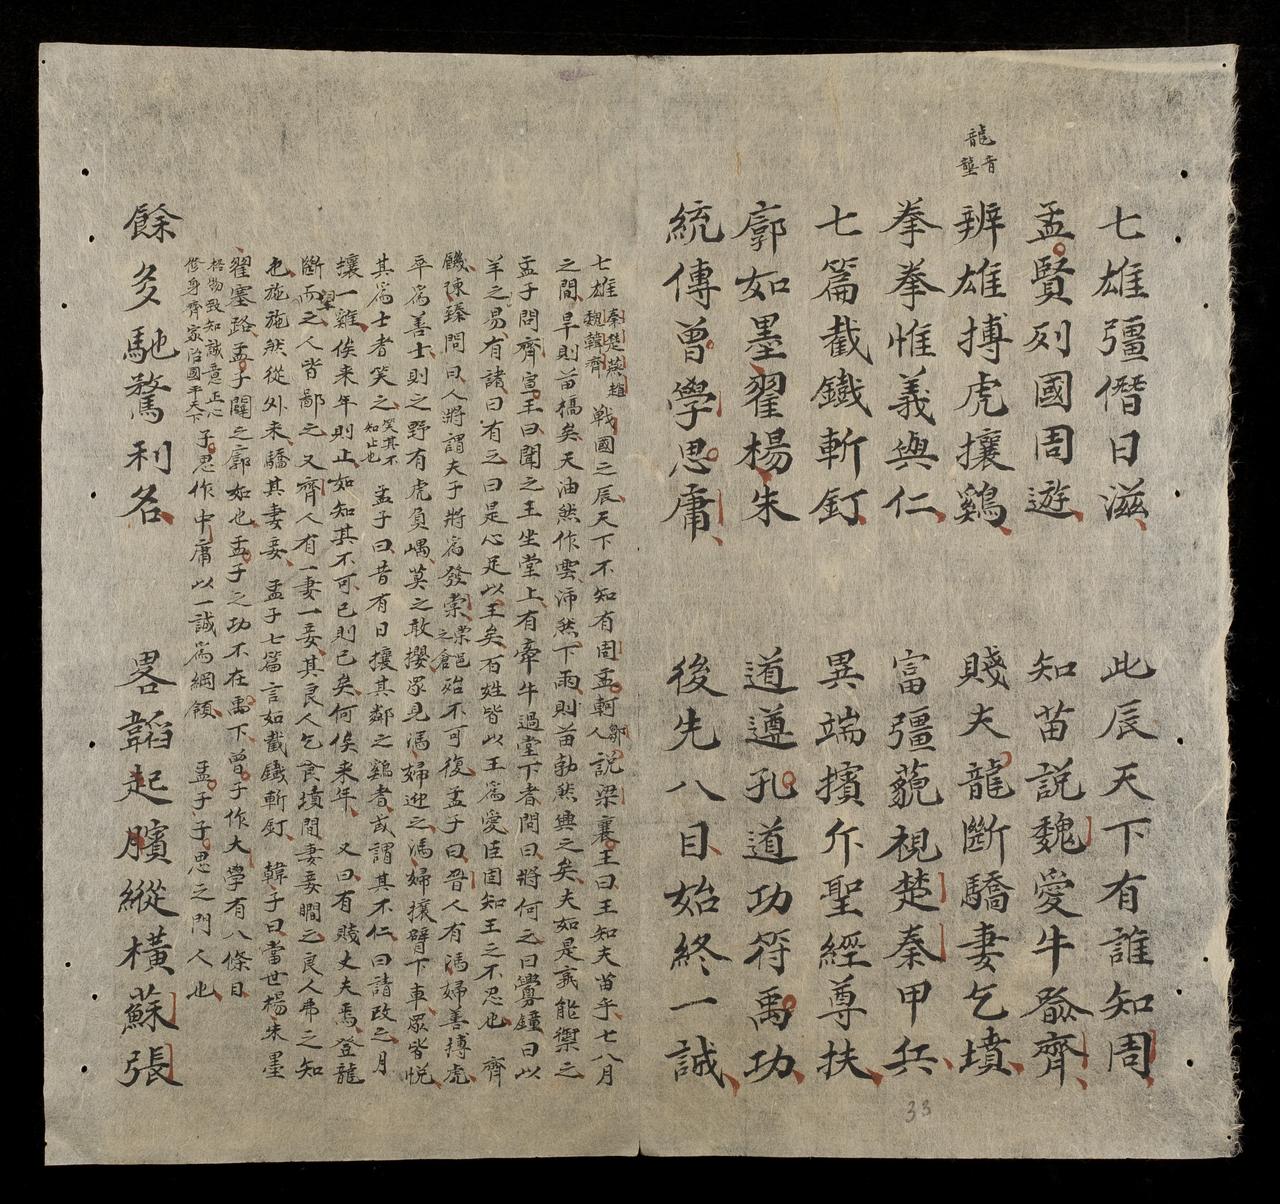 龍音
壟
七雄彊僭日滋 此辰天下有誰知周
孟賢列國周遊 知苗説魏愛牛喻齊
辨雄搏虎攘鷄 賤夫龍斷驕妻乞墳
拳拳惟義與仁 富彊藐視楚秦甲兵
七篇截鐵斬釘 異端擯斥聖經尊扶
廓如墨翟楊朱 道遵孔道功符禹功
統傳曾學思庸 後先八目始終一誠
七雄秦楚燕趙魏韓齊戰國之辰天下不知有周孟軻鄒人説梁襄王曰王知夫苗乎七八月
之間旱則苗槁矣天油然作雲沛然下雨則苗勃然興之矣夫如是孰能禦之
孟子問齊宣王曰聞之王坐堂上有牽牛過堂下者問曰將何之曰釁鐘曰以
羊之易有諸曰有之曰是心足以王矣百姓皆以王爲愛臣固知王之不忍也 齊
饑陳臻問曰人將謂夫子將爲發棠棠邑之倉殆不可復孟子曰晋人有馮婦善搏虎
卒爲善士則之野有虎負嵎莫之敢攖眾見馮婦迎之馮婦攘臂下車眾皆悦
其爲士者笑之笑其不知止也 孟子曰昔有日攘其鄰之鷄者或謂其不仁曰請改之月
攘一雞俟来年則止如知其不可已則已矣何俟来年 又曰有賤丈夫焉登龍
斷而望之人皆鄙之 又齊人有一妻一妾其良人乞食墳間妻妾瞯之良人弗之知
也施施然從外来驕其妻妾 孟子七篇言如截鐵斬釘 韓子曰當世楊朱墨
翟塞路孟子闢之廓如也孟子之功不在禹下曾子作大學有八條目
格物致知誠意正心修身齊家治國平天下子思作中庸以一誠爲綱領 孟子子思之門人也
餘多馳騖利名 畧韜起臏縱橫蘇張
33